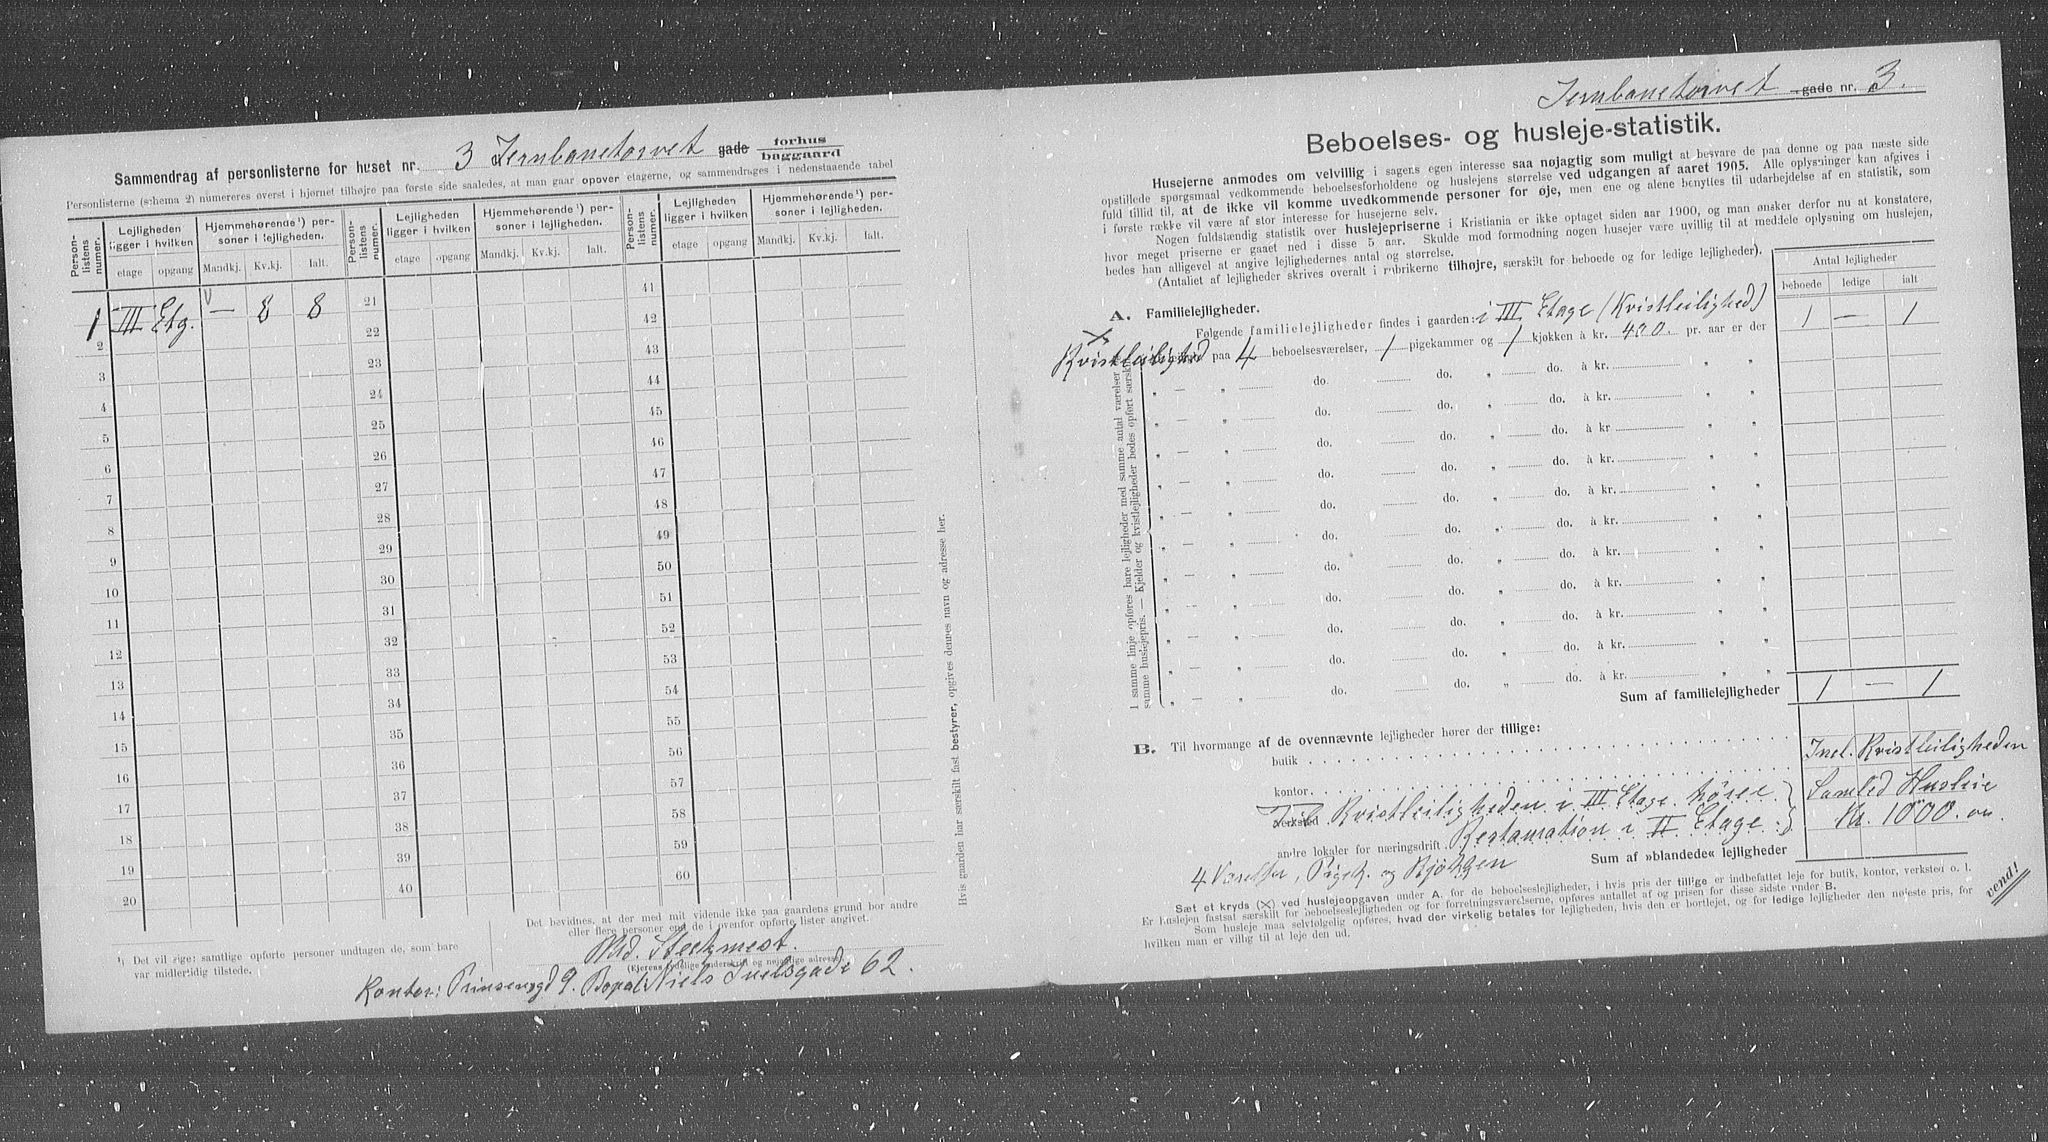 Sammendrag af personlisterne for huset nr. 3 Jernbanetorvet gade forhus baggaard
Personlisterne (schema 2) numereres øverst i hjørnet tilhøjre paa første side saaledes, at man gaar opover etagerne, og sammendrages i nedenstaaende tabel
Person-listens numer. Lejligheden ligger i hvilken Hjemmehørende ¹) personer i lejligheden. Person-listens numer. Lejligheden ligger i hvilken Hjemmehørende ¹) personer i lejligheden. Person-listens numer. Lejligheden ligger i hvilken Hjemmehørende ¹) personer i lejligheden.
etage opgang Mandkj. Kv.kj. Ialt. etage opgang Mandkj. Kv.kj. Ialt. etage opgang Mandkj. Kv.kj. Ialt.
1 III Etg. — 8 8 21 41
2 22 42
3 23 43
4 24 44
5 25 45
6 26 46
7 27 47
8 28 48
9 29 49
10 30 50
11 31 51
12 32 52
13 33 53
14 34 54
15 35 55
16 36 56
17 37 57
18 38 58
19 39 59
20 40 60
Hvis gaarden har særskilt fast bestyrer, opgives dennes navn og adresse her.
¹) Det vil sige: samtlige opførte personer undtagen de, som bare
var midlertidig tilstede.
Det bevidnes, at der med mit vidende ikke paa gaardens grund bor andre
eller flere personer end de i ovenfor opførte lister angivet.
Md. Steckmest.
(Ejerens tydelige underskrift og nøjagtige adresse)
Kontor: Prinsensgd 9. Bopæl: Niels Juelsgade 62.
Jernbanetorvet gade nr. 3.
Beboelses- og husleje-statistik.
Husejerne anmodes om velvillig i sagens egen interesse saa nøjagtig som muligt at besvare de paa denne og paa næste side
opstillede spørgsmaal vedkommende beboelsesforholdene og huslejens størrelse ved udgangen af aaret 1905. Alle oplysninger kan afgives i
fuld tillid til, at de ikke vil komme uvedkommende personer for øje, men ene og alene benyttes til udarbejdelse af en statistik, som
i første række vil være af stor interesse for husejerne selv.
Nogen fuldstændig statistik over huslejepriserne i Kristiania er ikke optaget siden aar 1900, og man ønsker derfor nu at konstatere,
hvor meget priserne er gaaet ned i disse 5 aar. Skulde mod formodning nogen husejer være uvillig til at meddele oplysning om huslejen,
bedes han alligevel at angive lejlighedernes antal og størrelse.
(Antallet af lejligheder skrives overalt i rubrikerne tilhøjre, særskilt for beboede og for ledige lejligheder).
Antal lejligheder
beboede ledige ialt
A. Familielejligheder.
Følgende familielejligheder findes i gaarden: i III Etage (Kvistleilighed) 1 — 1
× Kvistleilighed paa 4 beboelsesværelser, 1 pigekammer og 1 kjøkken à kr. 400. pr. aar er der
" — " do. do. " do. à kr. " "
" — " do. do. " do. à kr. " "
" — " do. do. " do. à kr " "
" — " do. do. " do. à kr. " "
" — " do. do. " do. à kr. " "
" — " do. do. " do. à kr. " "
" — " do. do. " do. à kr. " "
" — " do. do. " do. à kr. " "
" — " do. do. " do. à kr. " "
" — " do. do. " do. à kr. " "
" — " do. do. " do. à kr. " "
I samme linje opføres bare lejligheder med samme antal værelser og
samme huslejepris. — Kjelder og kvistlejligheder bedes opført særskilt
Sum af familielejligheder 1 — 1
B. Til hvormange af de ovennævnte lejligheder hører der tillige:
butik Incl. Kvistleiligheden
kontor Samled Husleie
verksted Til Kvistleiligheden i III Etage hörer Kr. 1000.
andre lokaler for næringsdrift. Restauration i II Etage.
4 Værelser, Pigek. og Kjökken Sum af »blandede« lejligheder
Sæt et kryds (×) ved huslejeopgaven under A, for de beboelseslejligheder, i hvis pris der tillige er indbefattet leje for butik, kontor, verksted o. l.
Er huslejen fastsat særskilt for beboelseslejligheden og for forretningsværelserne, opføres antallet af og prisen for disse sidste under B.
Som husleje maa selvfølgelig opføres, hvad der virkelig betales for lejligheden, hvis den er bortlejet, og for ledige lejligheder den nøjeste pris, for
hvilken man er villig til at leje den ud.
vend!